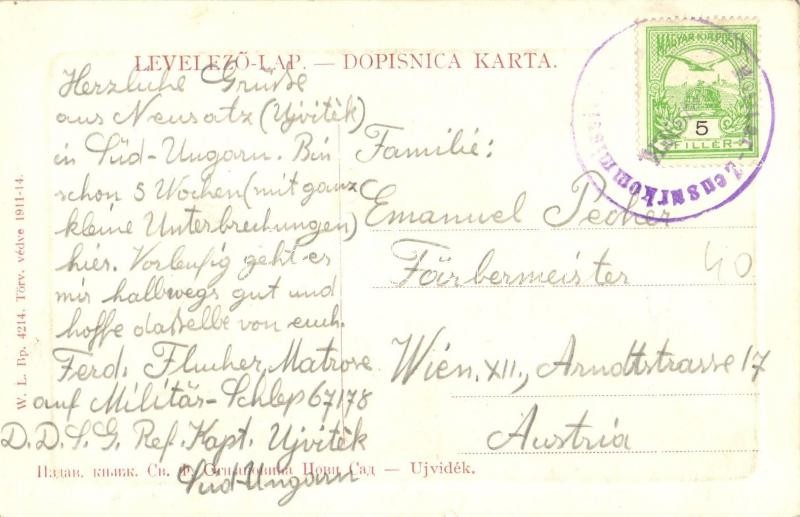 LEVELEZŐ-LAP. — DOPISNICA KARTA.
Herzliche Grüsse
aus Neusatz (Ujviték)
in Süd-Ungarn. Bin
schon 5 Wochen (mit ganz
kleine Unterbrechungen)
hier. Vorleufig geht es
mir halbwegs gut und
hoffe dasselbe von euch.
Ferd. Flucher, Matrose
auf Militär-Schlep 67178
D.D.S.G. Ref. Kapt. Ujviték
Süd-Ungarn
Familie:
Emanuel Pecher
Färbermeister
Wien. XII., Arndtstrasse 17
Austria
40
MAGYAR KIR. POSTA
5
FILLÉR
W. L. Bp. 4214. Törv. védve 1911-14.
Издав. књиж. Св. Ф. Огњановића Нови Сад — Ujvidék.